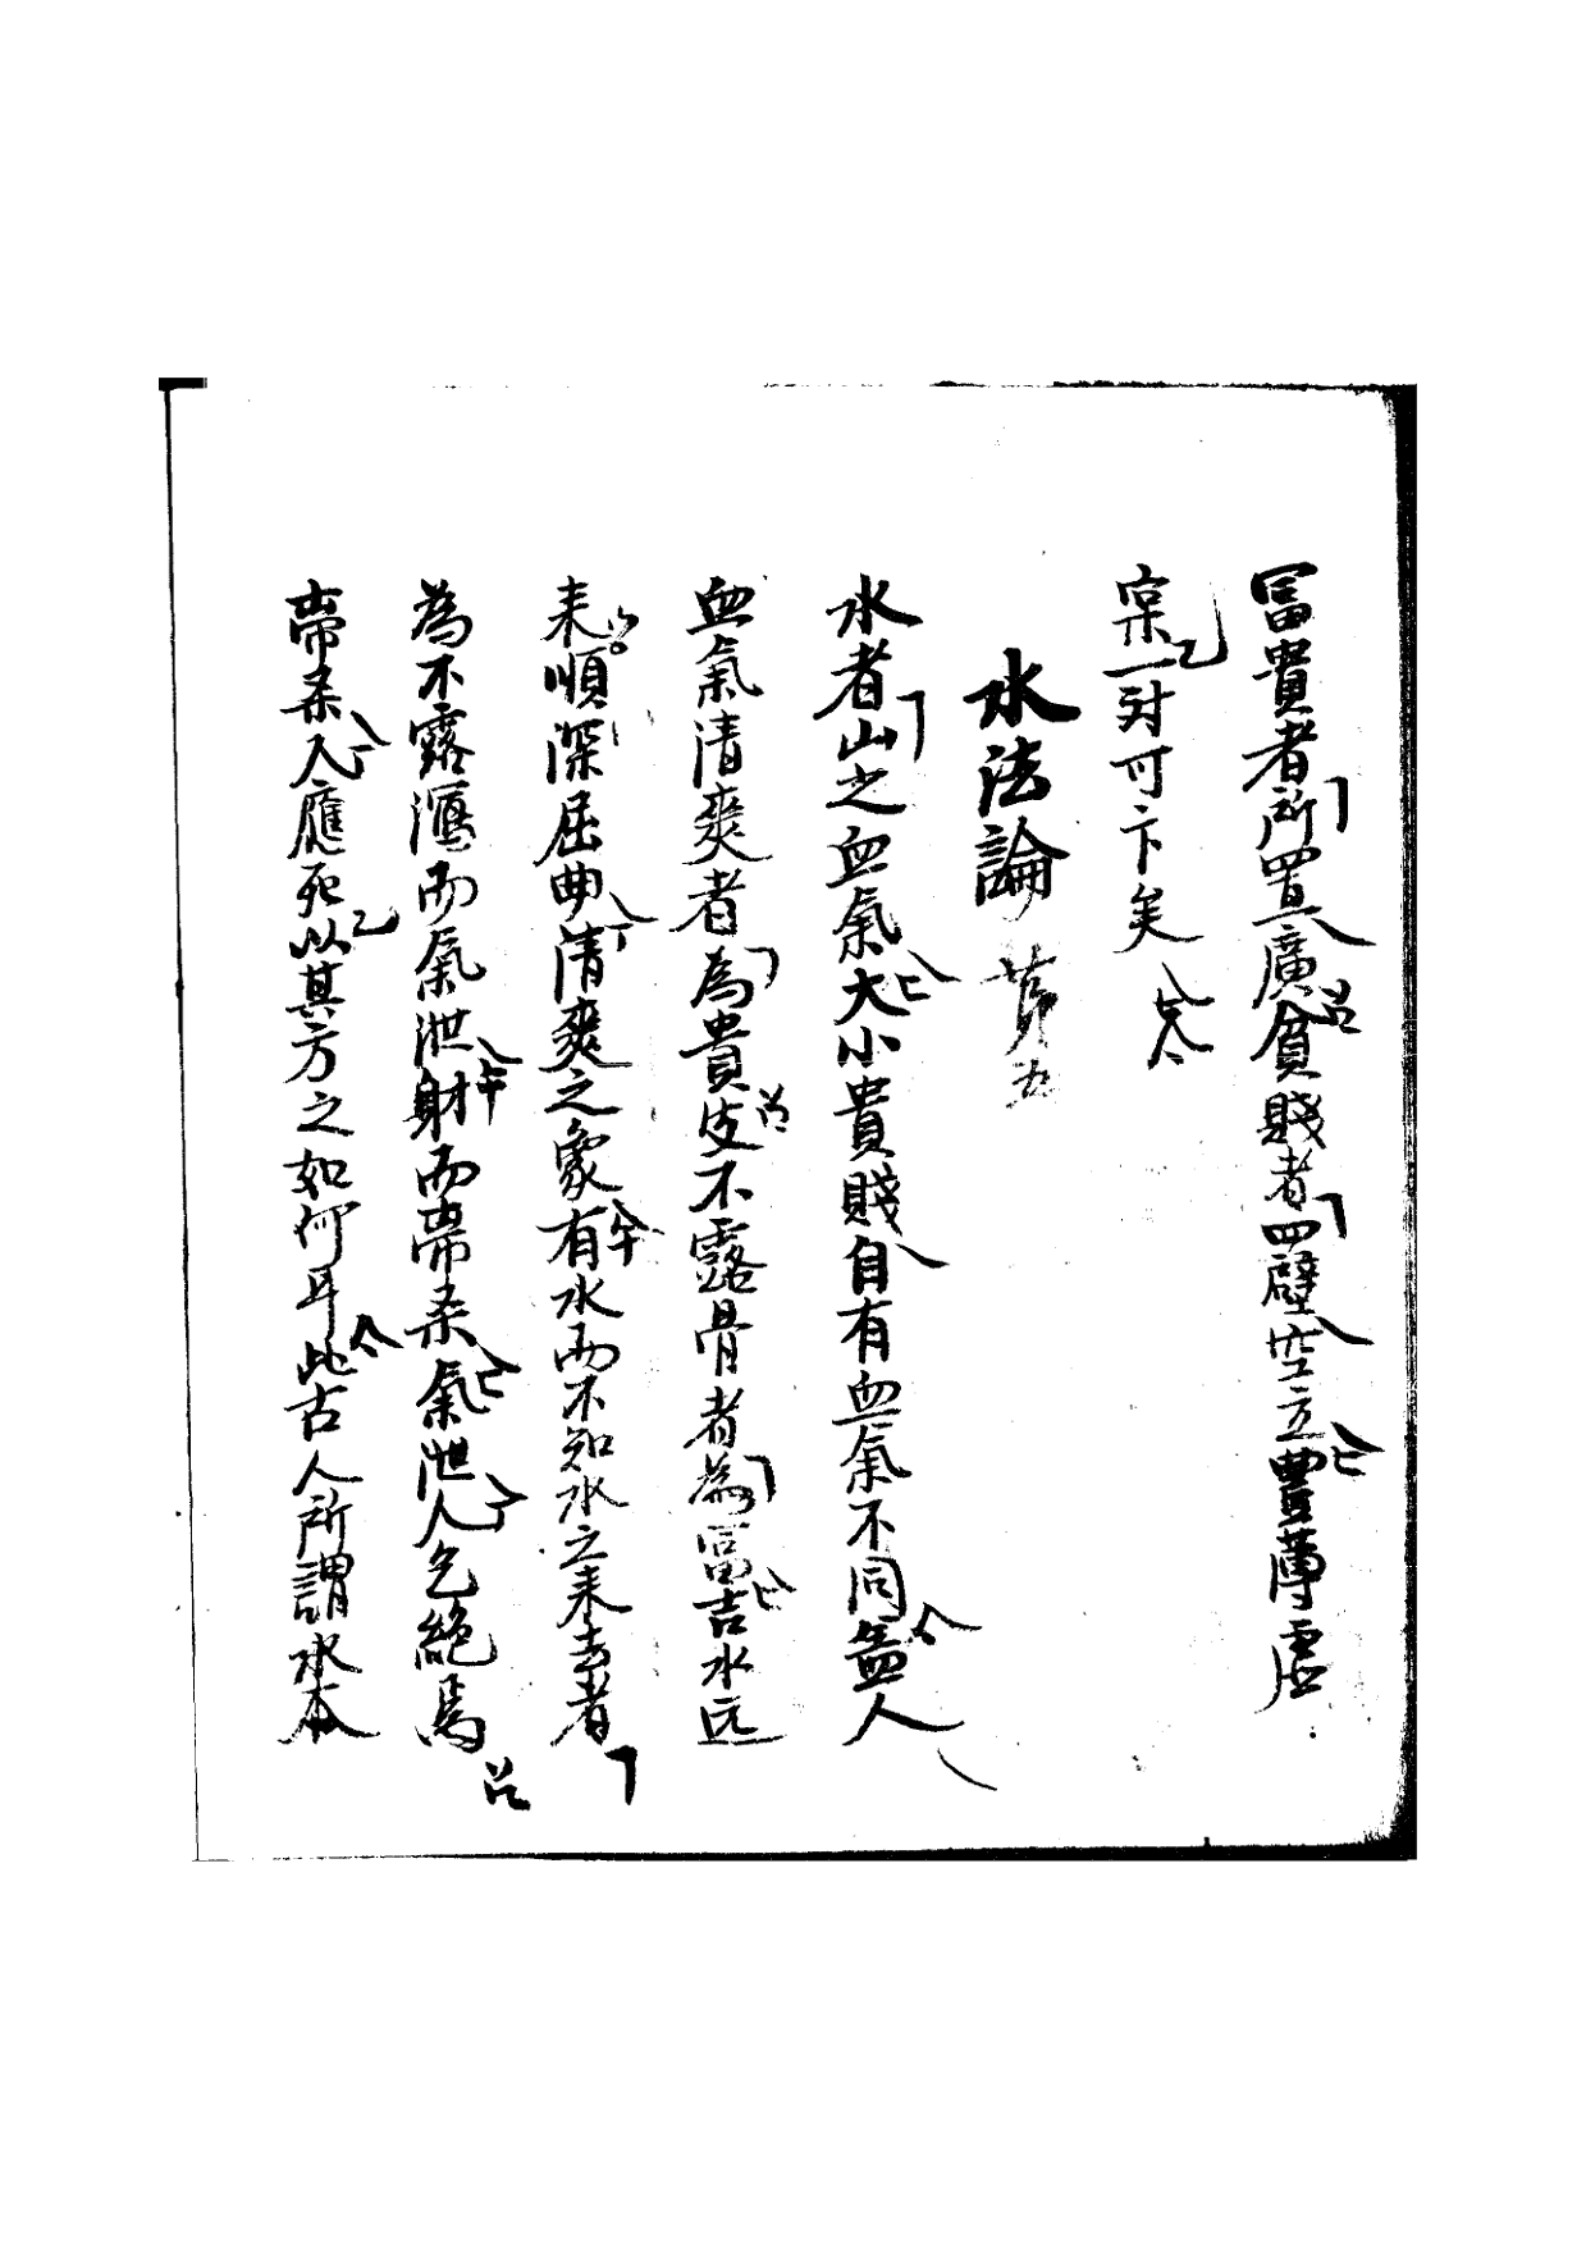 冨貴者所置廣貧賤者四壁空立豊薄虛
一討可卞矣
水法論 第五
水者山之血氣大小貴賤自有血氣不同盖人
血氣清爽者為貴皮不露骨者為冨吉水远
来順深屈曲清爽之象有水而不知水之来去者
為不露 而氣泄射而帶柔氣泄人乞絶焉
帶柔人應死以其方之如何耳此古人所謂水本